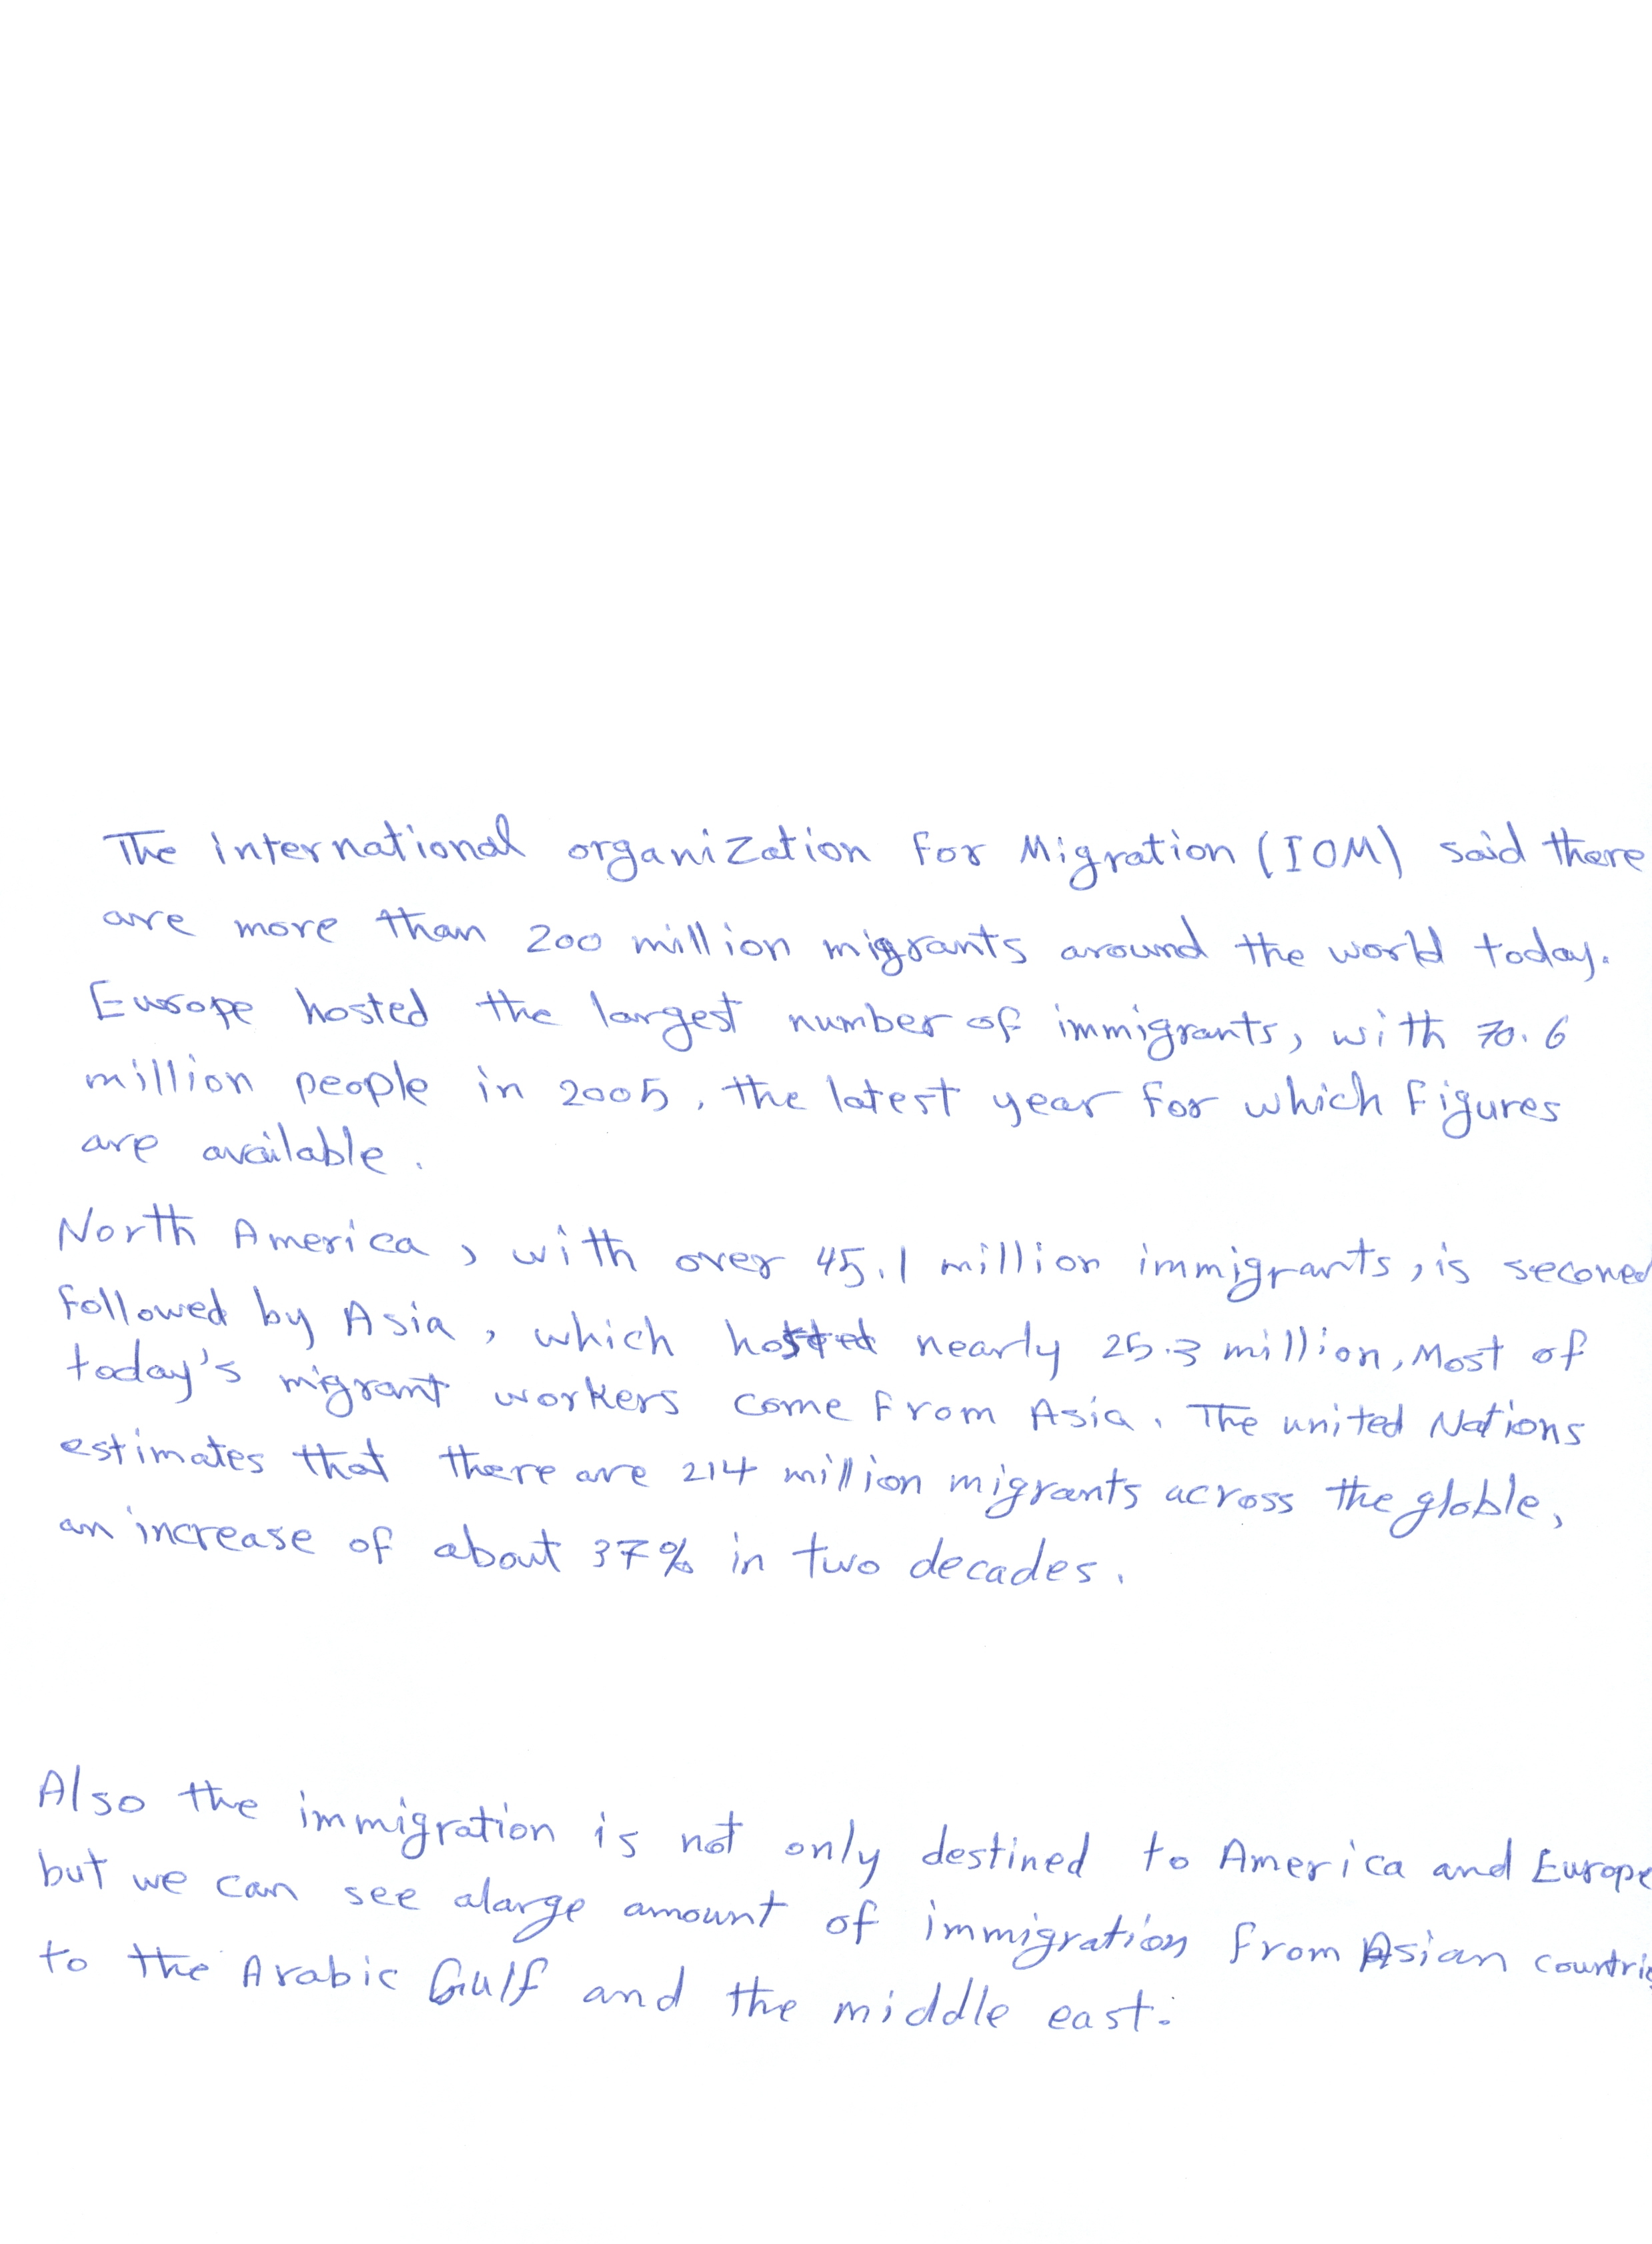 The international organization for Migration (IOM) said there
are more than 200 million migrants around the world today.
Europe hosted the largest number of immigrants, with 70.6
million people in 2005, the latest year for which figures
are available.
North America, with over 45.1 million immigrants, is seconed
followed by Asia, which hosted nearly 25.3 million, Most of
today's migrant workers come from Asia. The united Nations
estimates that there are 214 million migrants across the globle,
an increase of about 37% in two decades.
Also the immigration is not only destined to America and Europe
but we can see alarge amount of immigration from Asian countrie
to the Arabic Gulf and the middle east.